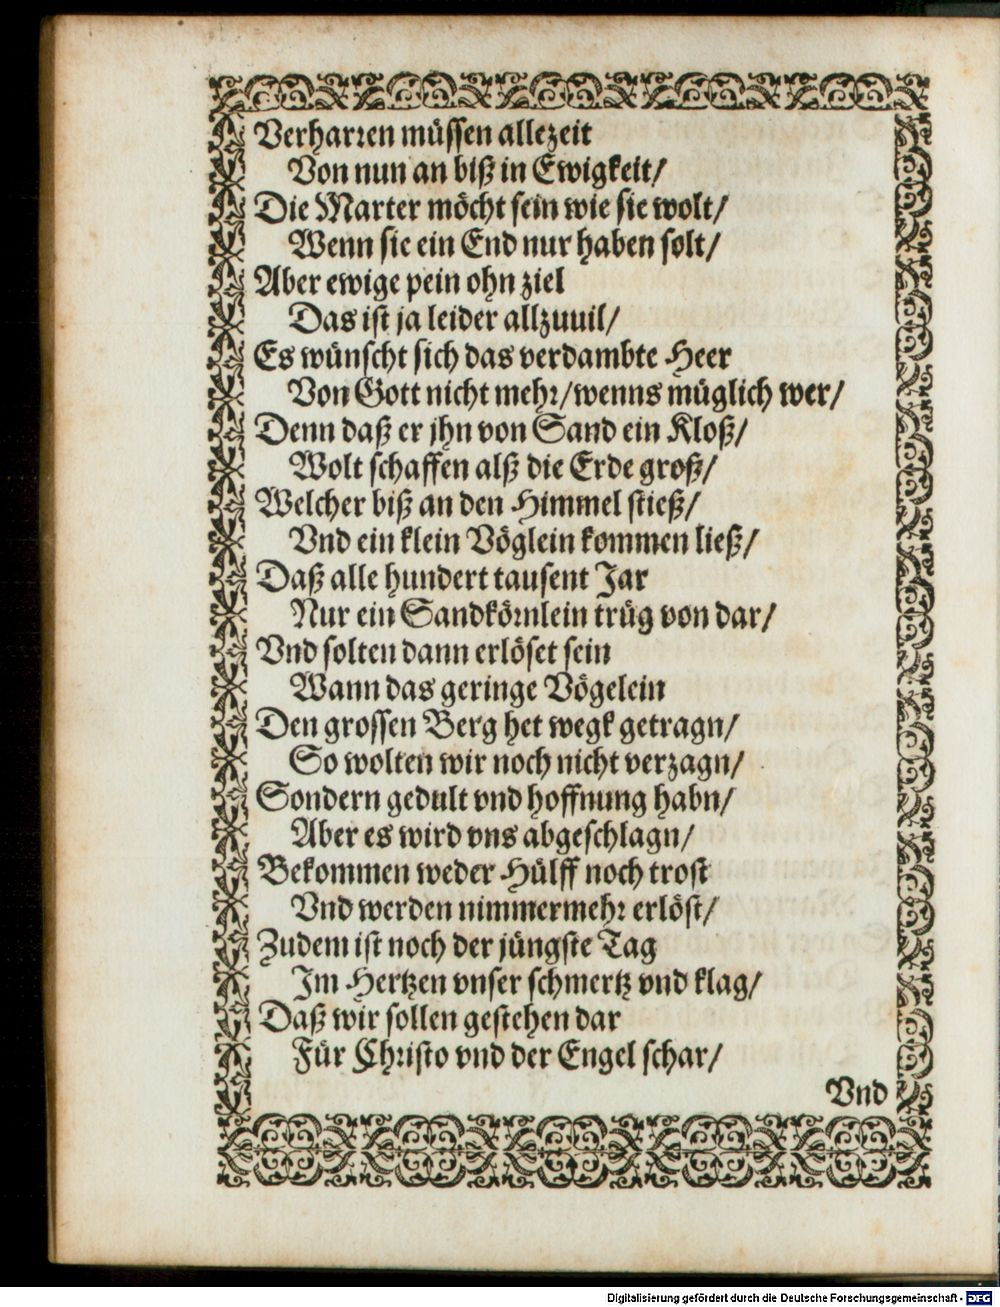 Verharren müssen allezeit
Von nun an biß in Ewigkeit/
Die Marter möcht sein wie sie wolt/
Wenn sie ein End nur haben solt/
Aber ewige pein ohn ziel
Das ist ja leider allzuuil/
Es wünscht sich das verdambte Heer
Von Gott nicht mehr/wenns müglich wer/
Denn daß er jhn von Sand ein Kloß/
Wolt schaffen alß die Erde groß/
Welcher biß an den Himmel stieß/
Vnd ein klein Vöglein kommen ließ/
Daß alle hundert tausent Jar
Nur ein Sandkörnlein trüg von dar/
Vnd solten dann erlöset sein
Wann das geringe Vögelein
Den grossen Berg het wegk getragn/
So wolten wir noch nicht verzagn/
Sondern gedult vnd hoffnung habn/
Aber es wird vns abgeschlagn/
Bekommen weder Hülff noch trost
Vnd werden nimmermehr erlöst/
Zudem ist noch der jüngste Tag
Im Hertzen vnser schmertz vnd klag/
Daß wir sollen gestehen dar
Für Christo vnd der Engel schar/
Vnd
Digitalisierung gefördert durch die Deutsche Forschungsgemeinschaft - DFG